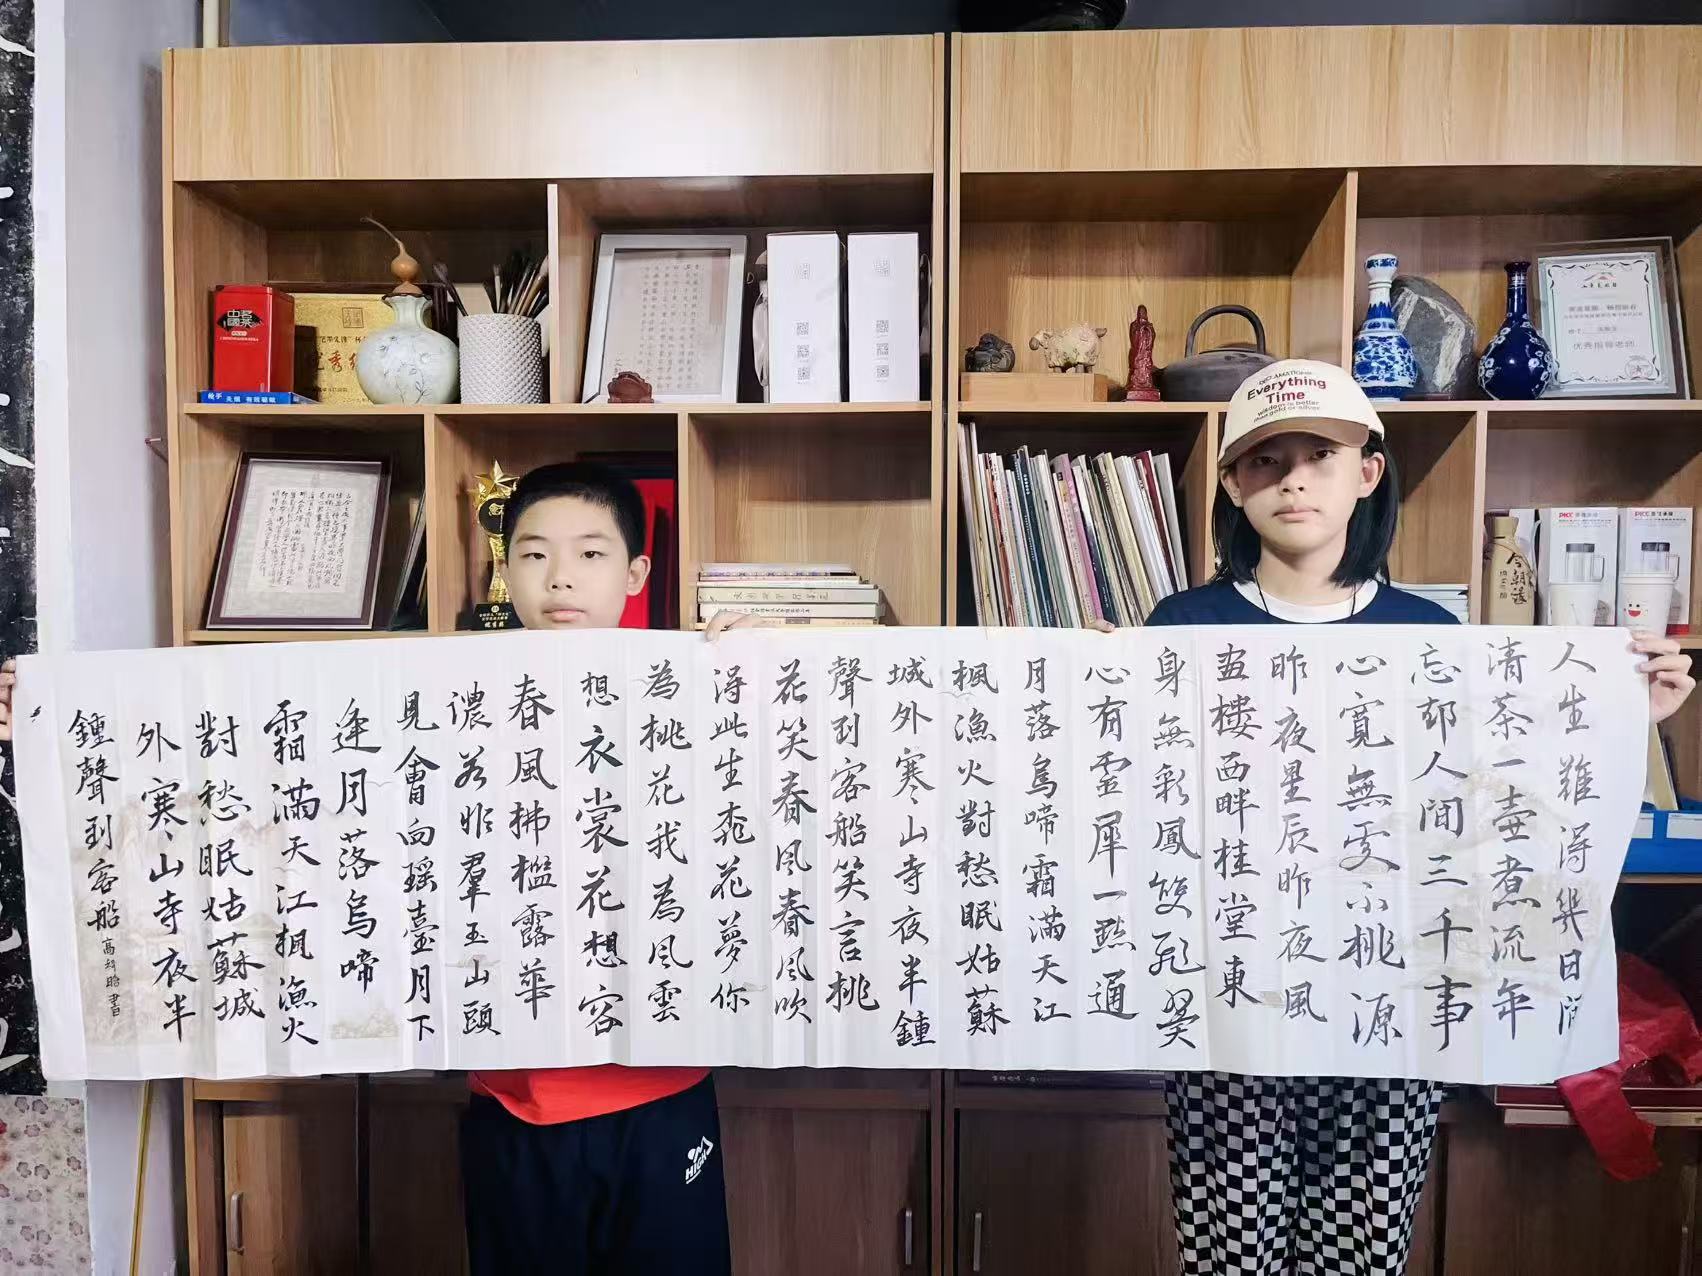 人生難得幾日閒
清茶一壺煮流年
忘却人间三千事
心寬無处不桃源
昨夜星辰昨夜風
画樓西畔桂堂東
身無彩鳳雙飛翼
心有霊犀一點通
月落烏啼霜滿天江
楓漁火對愁眠姑蘇
城外寒山寺夜半鍾
聲到客船笑言桃
花笑春风春风吹
得此生桃花夢你
為桃花我為风雲
想衣裳花想容
春風拂檻露華
濃若非羣玉山頭
見會向瑶臺月下
逢月落烏啼
霜滿天江楓漁火
對愁眠姑蘇城
外寒山寺夜半
鍾聲到客船
書
Everything
Time
wisdom is better
than gold or silver
中國名茶
優秀指導老師
PICC
PICC
今朝緣
HIGH